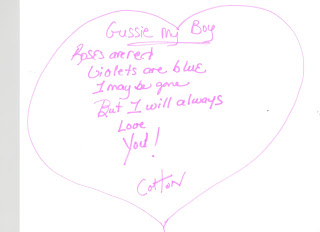 Gussie my Boy
Roses are red
Violets are blue
I may be gone
But I will always
Love
You!
Cotton